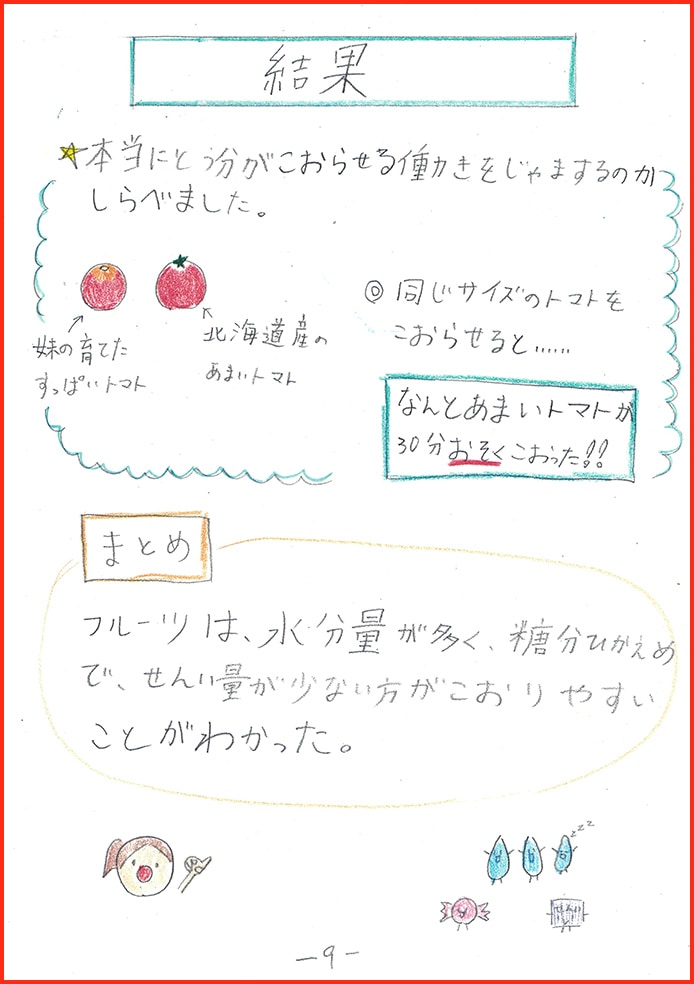 結果
本当にとう分がこおらせる働きをじゃまするのか
しらべました。
妹の育てた
すっぱいトマト
北海道産の
あまいトマト
◎ 同じサイズのトマトを
こおらせると……
なんとあまいトマトが
30分おそくこおった!!
まとめ
フルーツは、水分量が多く、糖分ひかえめ
で、せんい量が少ない方がこおりやすい
ことがわかった。
zzz
せんい
-9-